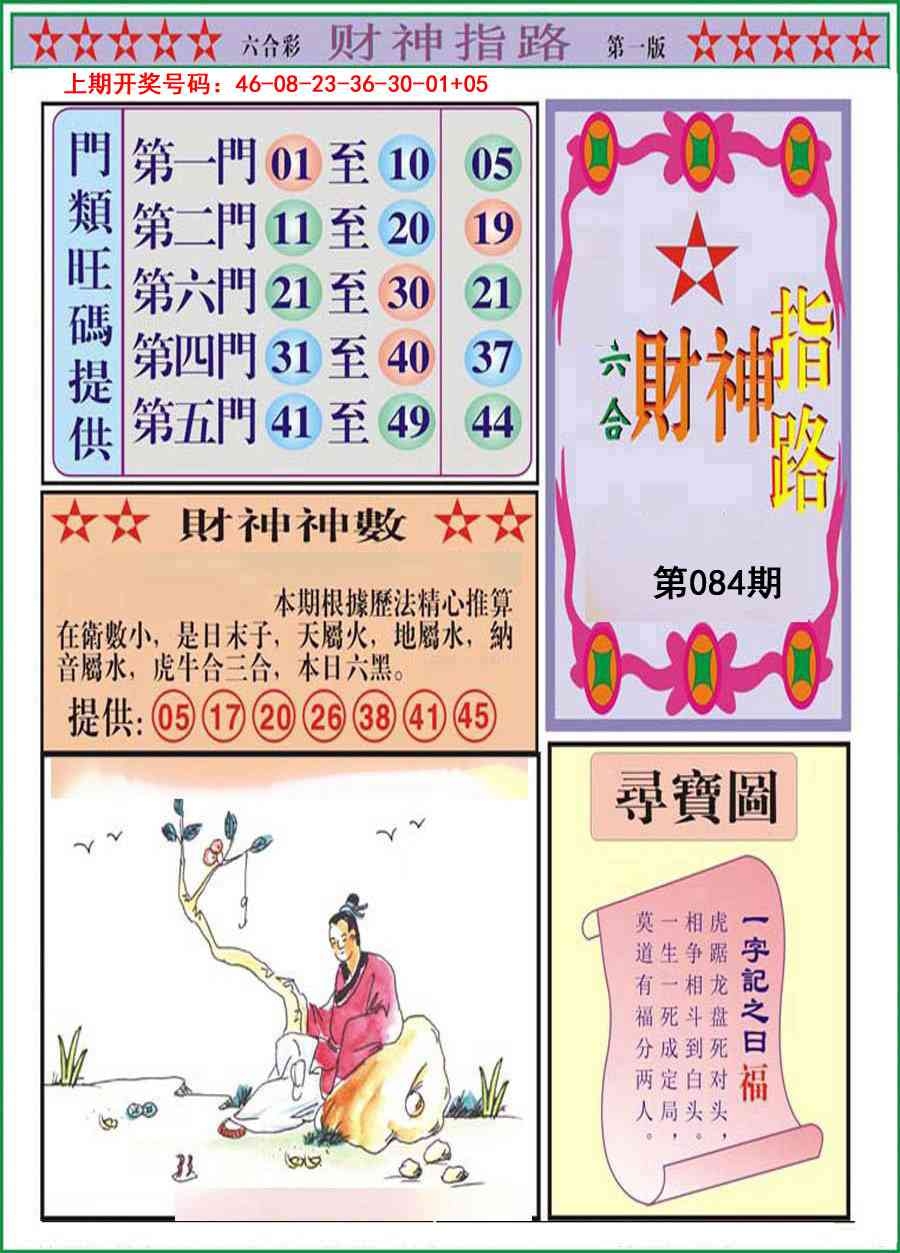 六合彩 财神指路 第一版
上期开奖号码：46-08-23-36-30-01+05
門類旺碼提供
第一門 01 至 10 05
第二門 11 至 20 19
第六門 21 至 30 21
第四門 31 至 40 37
第五門 41 至 49 44
六合
財神
指路
第084期
財神神數
本期根據歷法精心推算
在衛數小，是日末子，天屬火，地屬水，納
音屬水，虎牛合三合，本日六黑。
提供: 05 17 20 26 38 41 45
尋寶圖
一字記之曰福
虎踞龙盘死对头，
相争相斗到白头。
一生一死成定局，
莫道有福分两人。